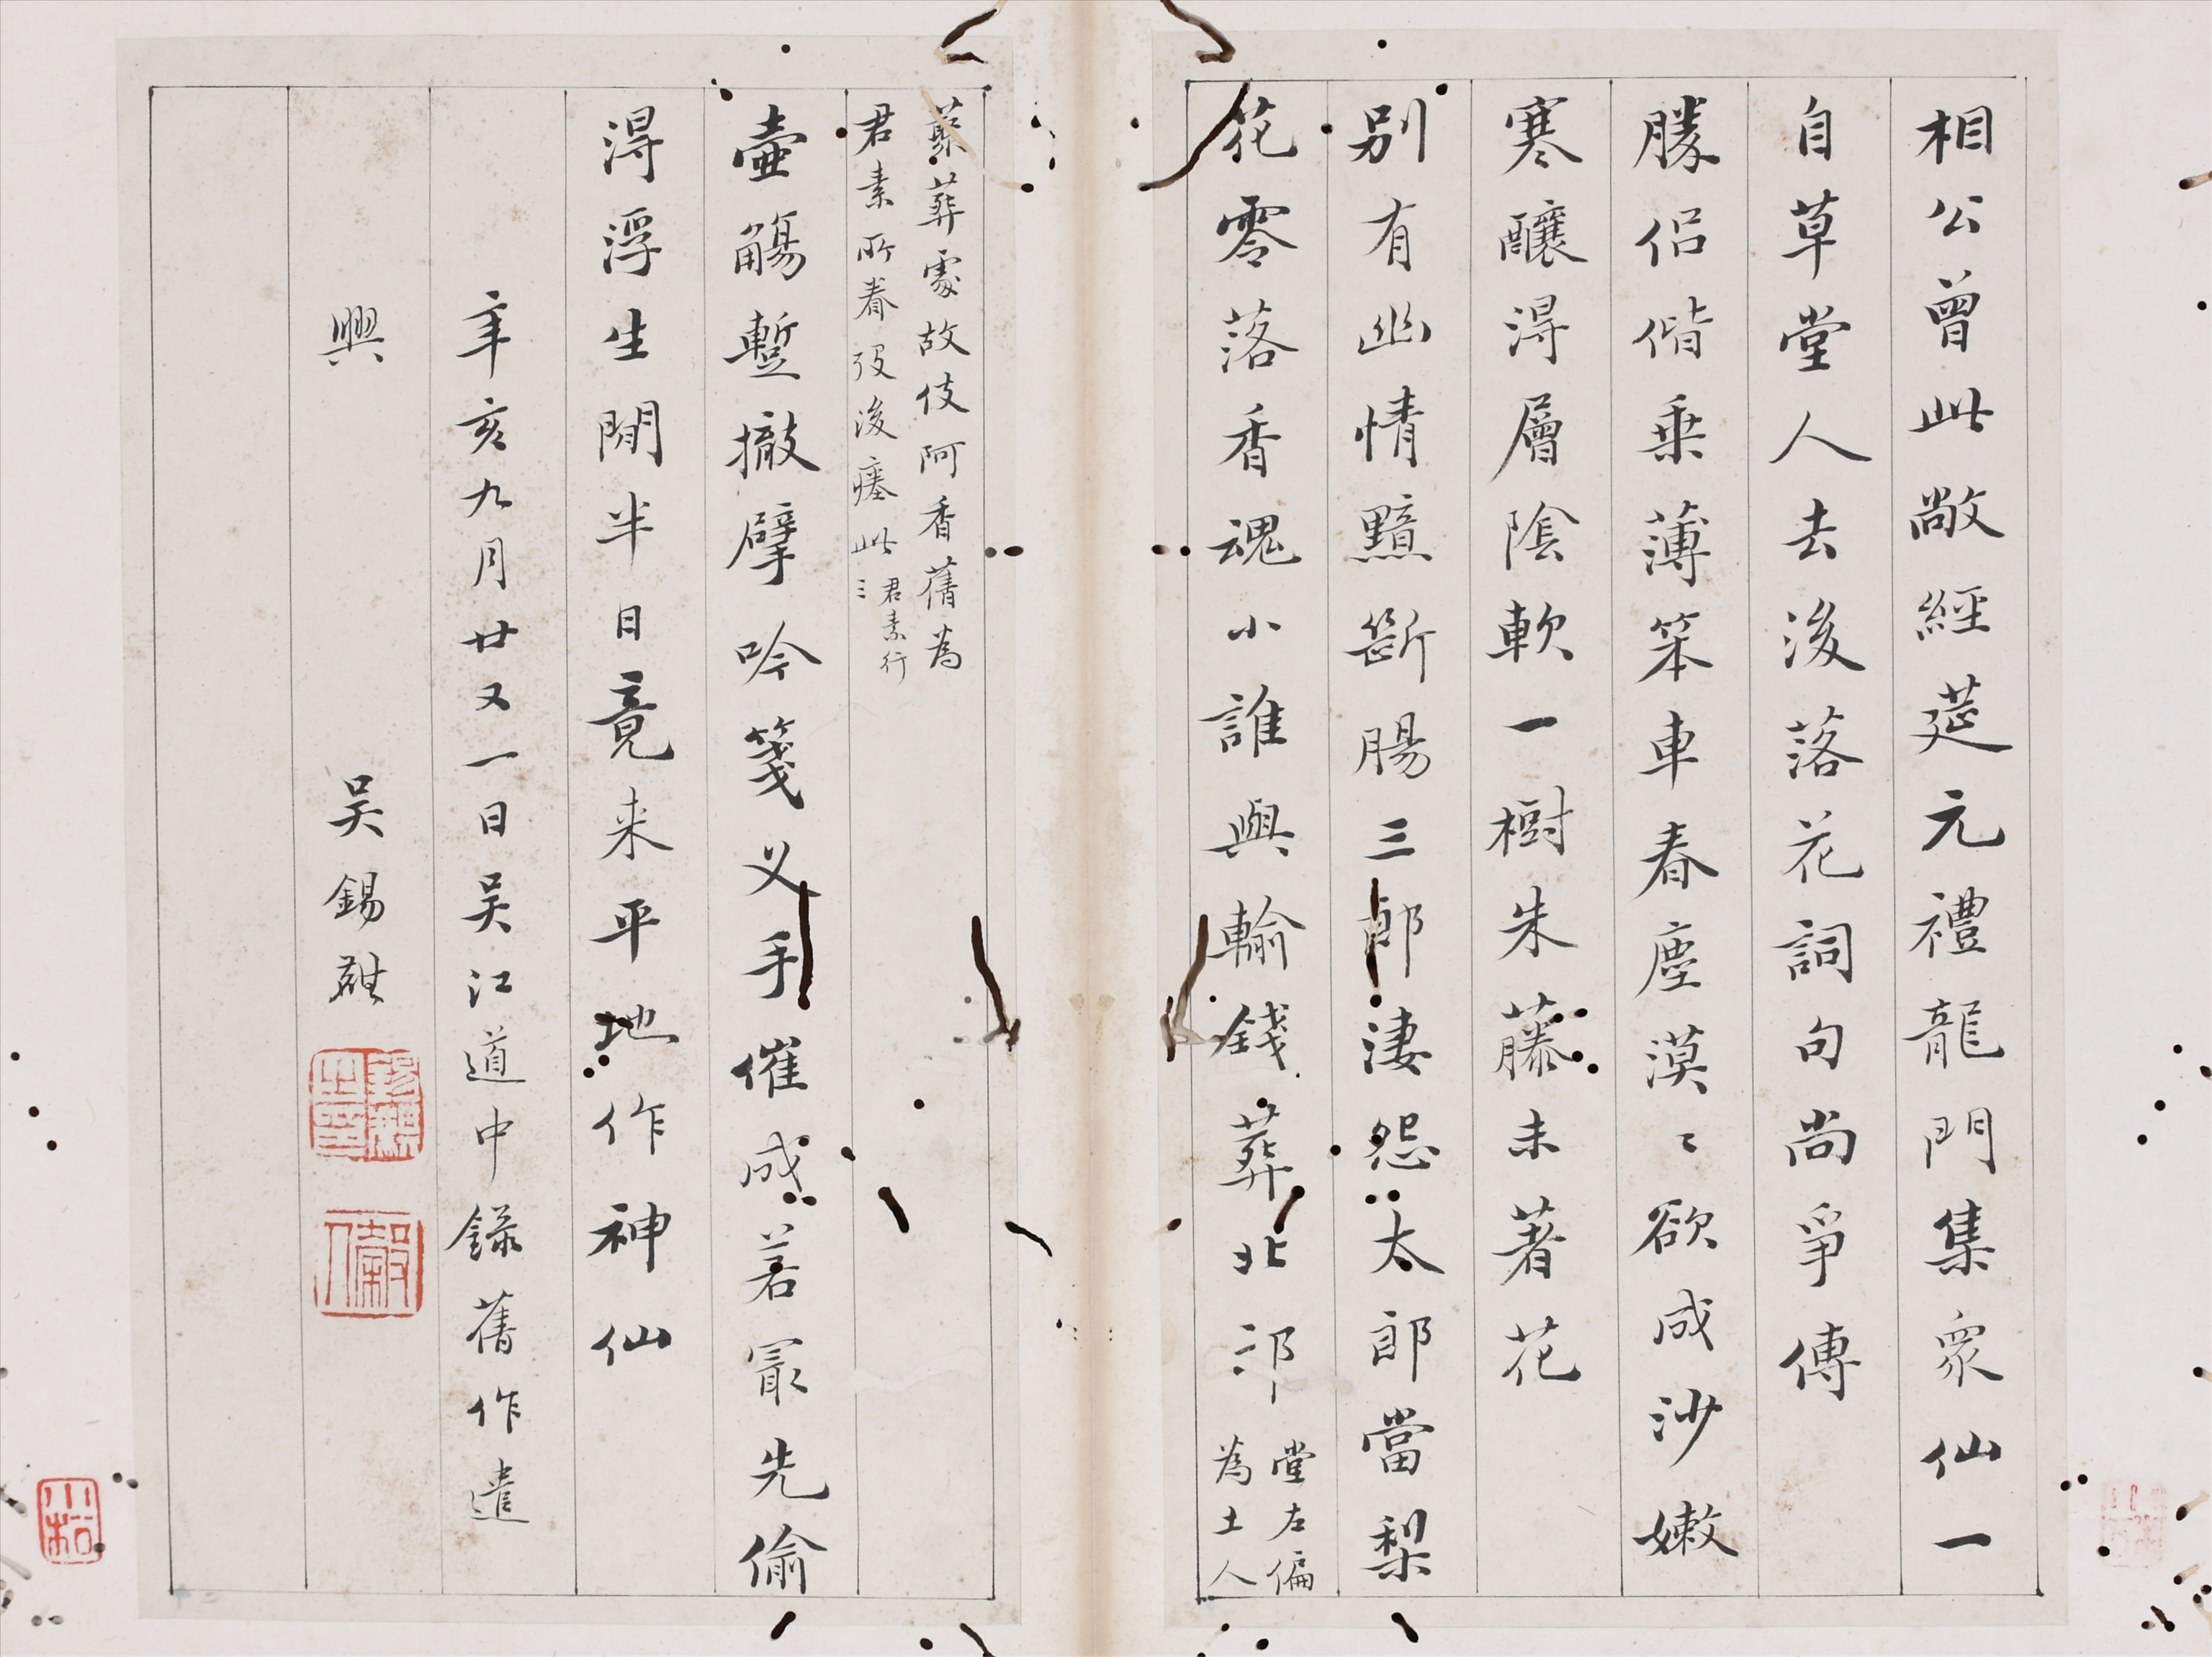 相公曾此敞經莚元禮龍門集衆仙一
自草堂人去後落花詞句尚爭傳
勝侣偕乗薄笨車春塵漠〻欲成沙嫩
寒釀得層陰軟一樹朱藤未著花
别有幽情黯斷腸三郎淒怨太郎當梨
花零落香魂小誰與輸錢葬北邙
堂左偏
為土人
叢葬處故伎阿香舊為
君素所眷歿後瘞此
君素行
三
壷觴蹔撤擘吟箋义手催成若㝡先偷
得浮生閒半日竟来平地作神仙
辛亥九月廿又一日吴江道中錄舊作遣
興
吴錫麒